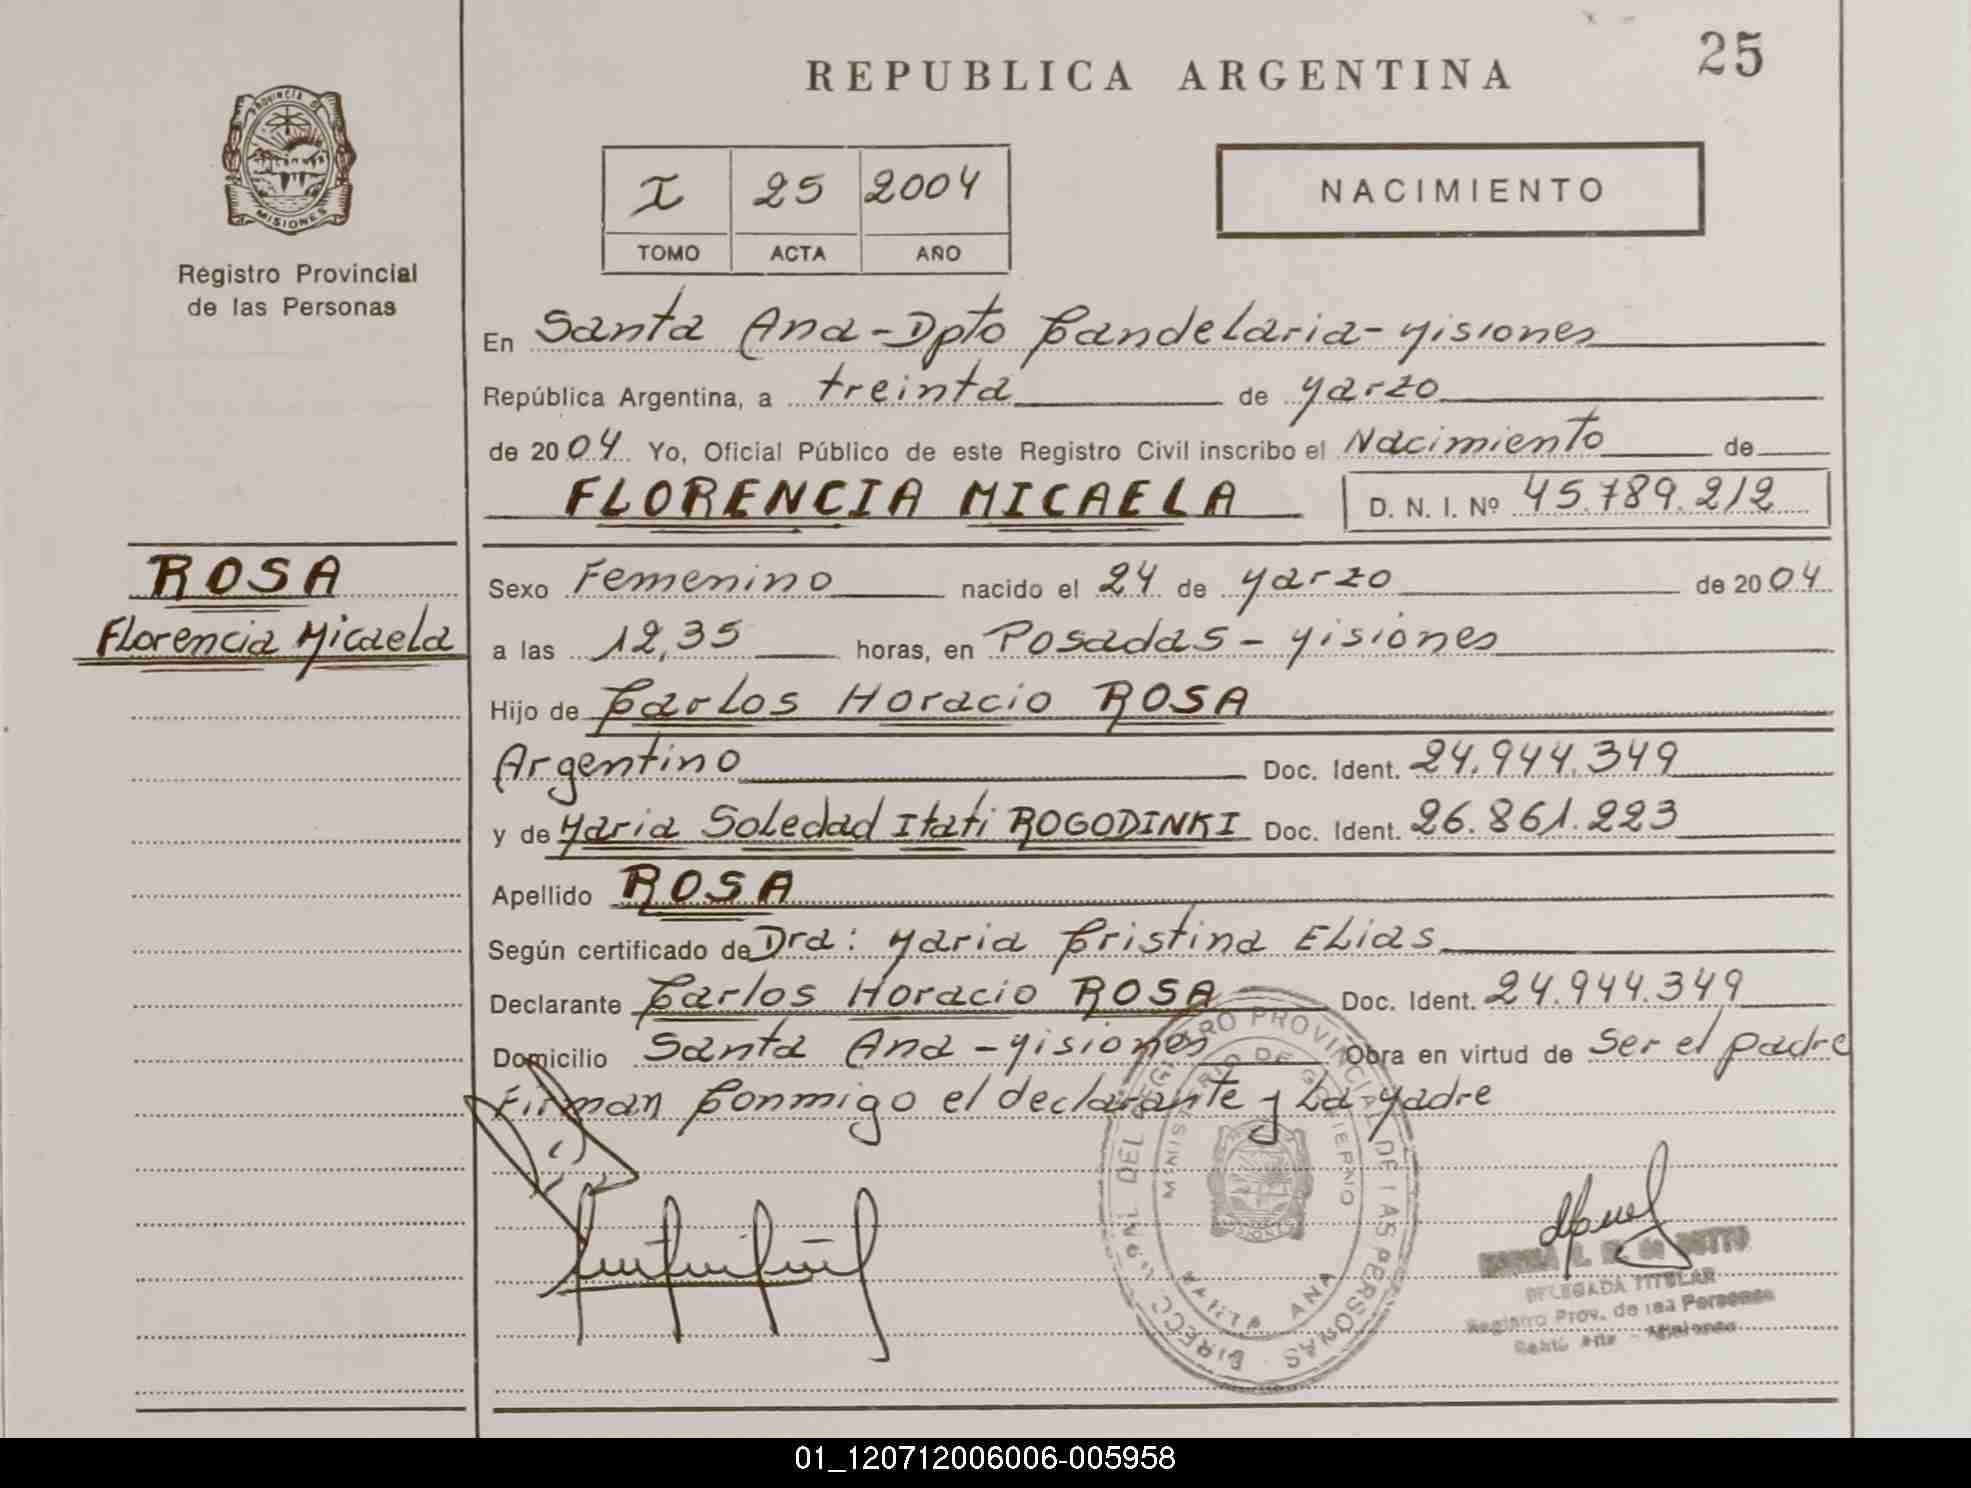 REPUBLICA ARGENTINA
25
PROVINCIA D
MISIONES
Registro Provincial
de las Personas
I 25 2004
TOMO ACTA AÑO
NACIMIENTO
En Santa Ana - Dpto Candelaria - Misiones
República Argentina, a treinta de Marzo
de 2004 Yo, Oficial Público de este Registro Civil inscribo el Nacimiento de
FLORENCIA MICAELA D. N. I. Nº 45.789.212
ROSA
Florencia Micaela
Sexo Femenino nacido el 24 de Marzo de 2004
a las 12,35 horas, en Posadas - Misiones
Hijo de Carlos Horacio ROSA
Argentino Doc. Ident. 24.944.349
y de Maria Soledad Itati ROGODINKI Doc. Ident. 26.861.223
Apellido ROSA
Según certificado de Dra: Maria Cristina Elias
Declarante Carlos Horacio ROSA Doc. Ident. 24.944.349
Domicilio Santa Ana - Misiones Obra en virtud de Ser el padre
Firman Conmigo el declarante y La Madre
DIRECC. GRAL DEL REGISTRO PROVINCIAL DE LAS PERSONAS
MINISTERIO DE GOBIERNO
SANTA ANA
DELEGADA TITULAR
Registro Prov. de las Personas
Santa Ana - Misiones
01_120712006006-005958